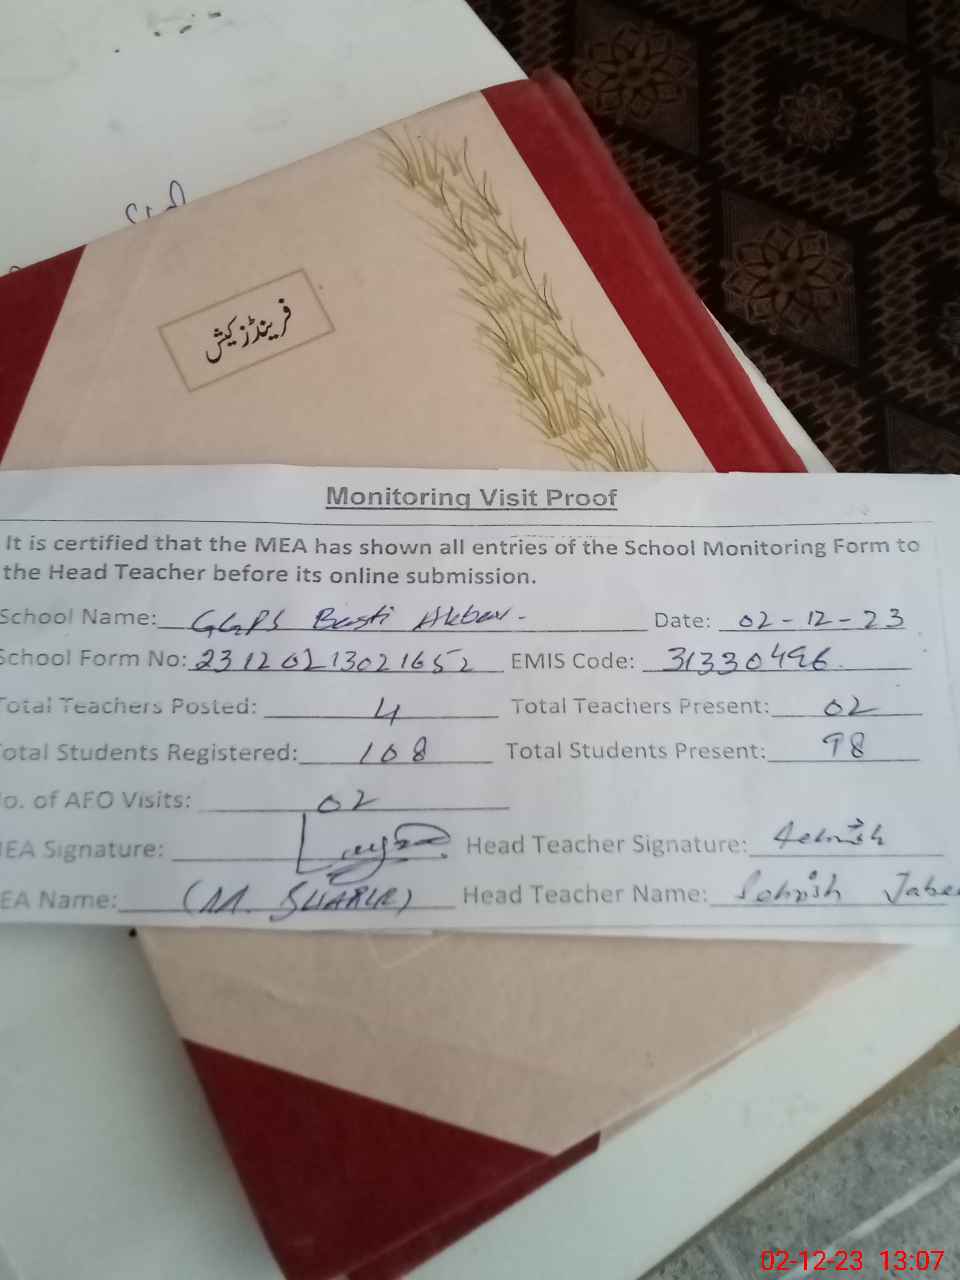 فرینڈز کیش
Monitoring Visit Proof
It is certified that the MEA has shown all entries of the School Monitoring Form to
the Head Teacher before its online submission.
School Name: GGPS Basti Akbar - Date: 02-12-23
School Form No: 23120213021652 EMIS Code: 31330496
Total Teachers Posted: 4 Total Teachers Present: 02
Total Students Registered: 108 Total Students Present: 98
No. of AEO Visits: 02
MEA Signature: Head Teacher Signature:
MEA Name: Head Teacher Name: Sehrish
02-12-23 13:07